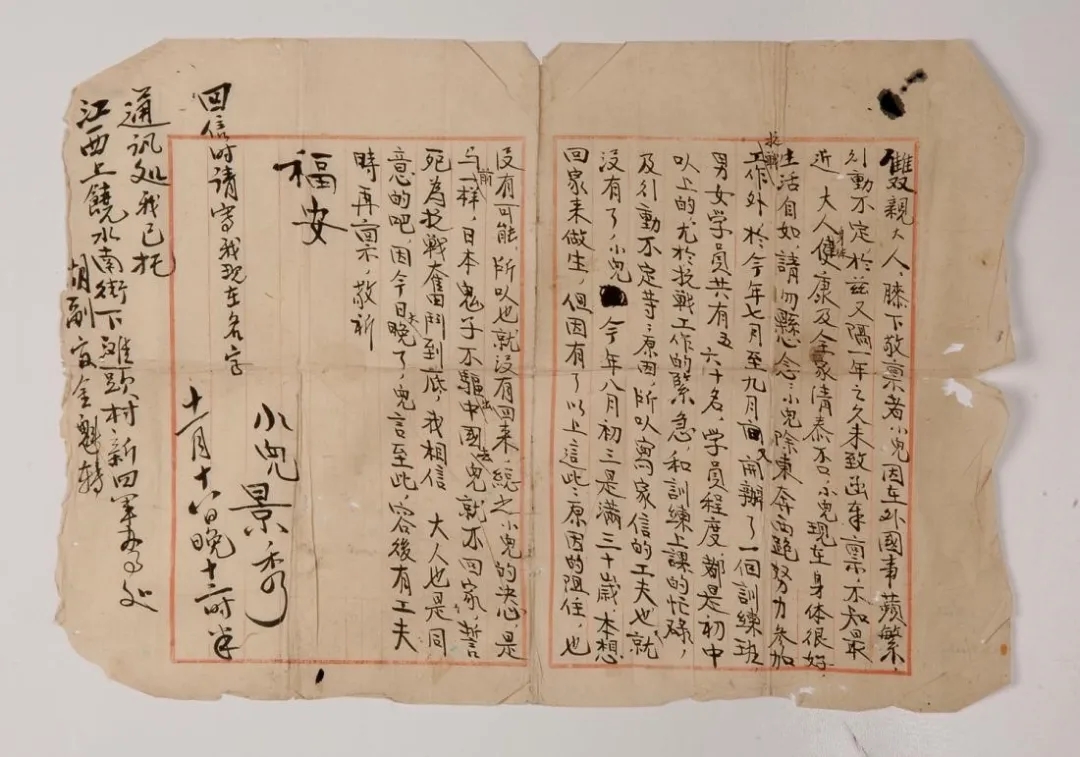 雙親大人，膝下敬禀者小兒因在外國事蘋繁，
引動不定於兹又隔一年之久未致函车禀，不知最
近 大人健康及全家清泰否，小兒現在身体很好，
生活自如，請勿縣念：小兒除東奔西跑努力參加
抗戰工作外，於今年七月至九月間又開辦了一個訓練班，
男女学員共有五六十名，学員程度，都是初中
以上的，尤於抗戰工作的緊急，和訓練上課的忙碌，
及引動不定等：原因，所以寫家信的工夫也就
没有了，小兒 今年八月初三是满三十歲，本想
回家来做生，但因有了以上這此：原因的阻住，也
没有可能，所以也就没有回来，總之小兒的决心是
与前一樣，日本鬼子不驅出中國去兒就不回家，誓
死為抗戰奮鬥到底，我相信 大人也是同
意的吧，因今日太晚了，兒言至此，容後有工夫
時再禀，敬祈
福安
小兒景秀
十一月十八日晚十二时半
回信时请寫我現在名字
通讯处我已托
江西上饒水南街下進題村新四軍办事处
胡副官金魁转